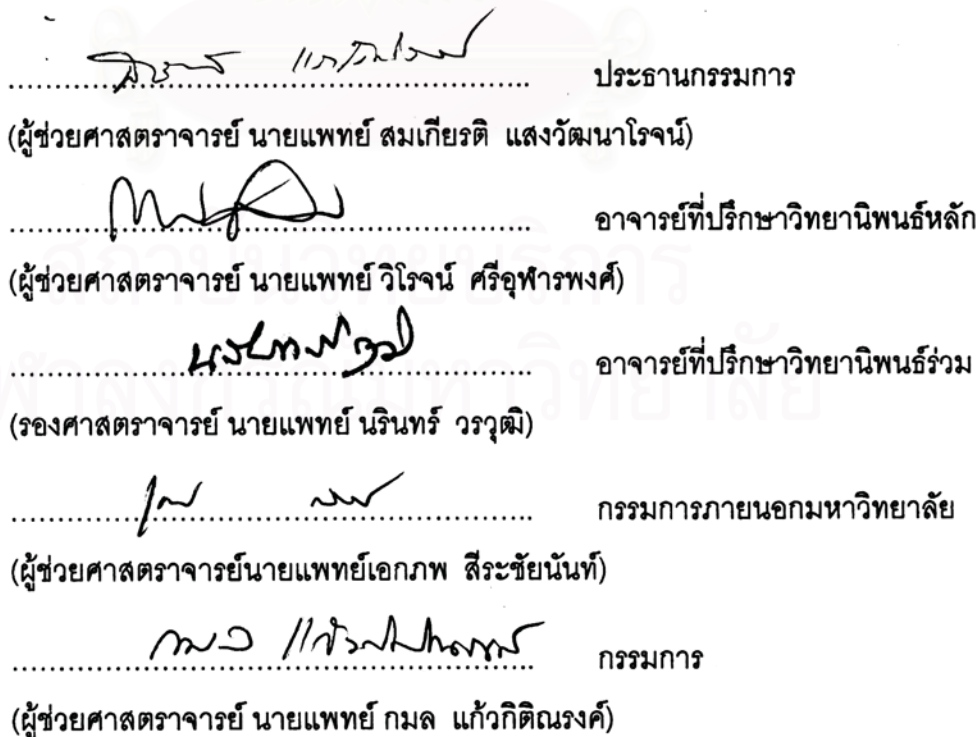 ประธานกรรมการ
(ผู้ช่วยศาสตราจารย์ นายแพทย์ สมเกียรติ แสงวัฒนาโรจน์)
อาจารย์ที่ปรึกษาวิทยานิพนธ์หลัก
(ผู้ช่วยศาสตราจารย์ นายแพทย์ วิโรจน์ ศรีอุฬารพงศ์)
สถาบันวิทยบริการ
อาจารย์ที่ปรึกษาวิทยานิพนธ์ร่วม
จุฬาลงกรณ์มหาวิทยาลัย
(รองศาสตราจารย์ นายแพทย์ นรินทร์ วรวุฒิ)
กรรมการภายนอกมหาวิทยาลัย
(ผู้ช่วยศาสตราจารย์นายแพทย์เอกภพ สิระชัยนันท์)
กรรมการ
(ผู้ช่วยศาสตราจารย์ นายแพทย์ กมล แก้วกิติณรงค์)